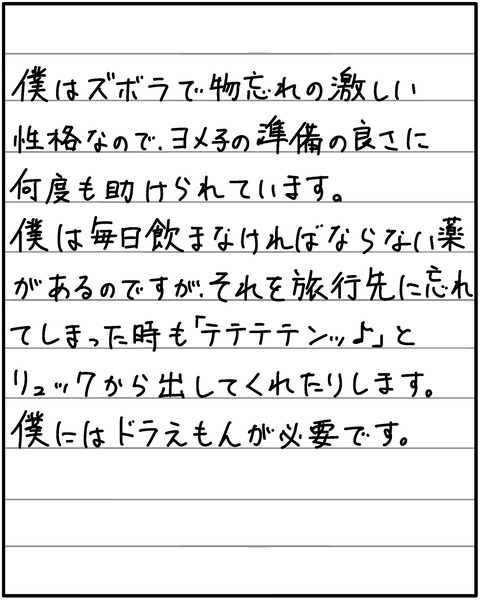 僕はズボラで物忘れの激しい
性格なので、ヨメ子の準備の良さに
何度も助けられています。
僕は毎日飲まなければならない薬
があるのですが、それを旅行先に忘れ
てしまった時も「テテテテンッ♪」と
リュックから出してくれたりします。
僕にはドラえもんが必要です。